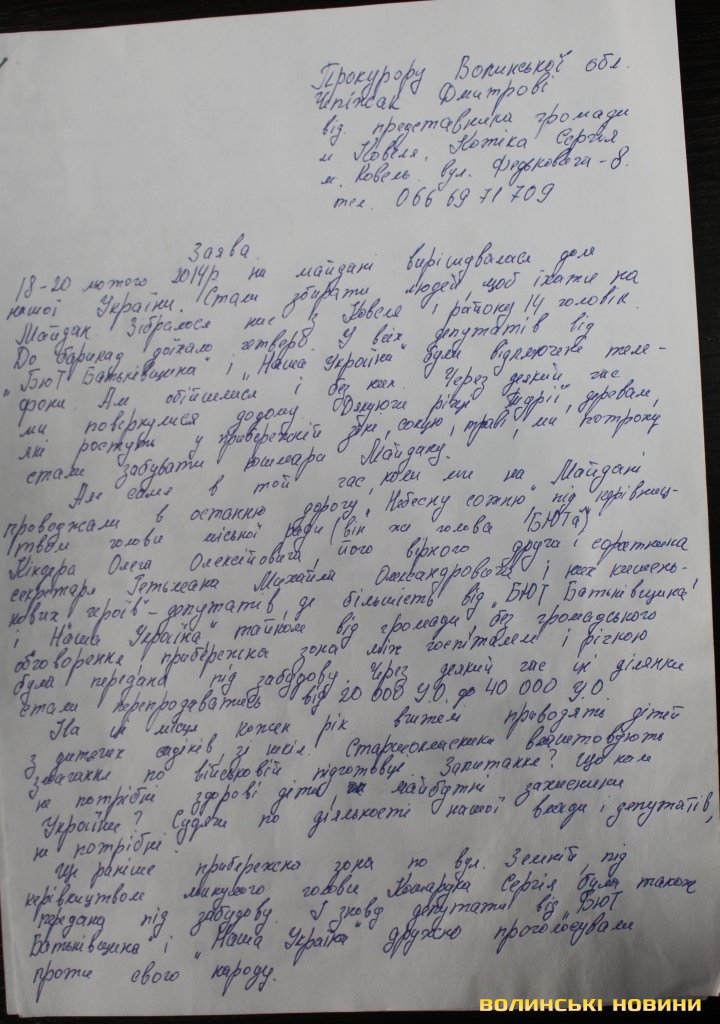 Прокурору Волинської обл.
Чепіжак Дмитрові
від представника громади
м. Ковеля, Котіка Сергія
м. Ковель вул. Федьковича-8.
тел. 066 69 71 709
Заява.
18-20 лютого 2014р на майдані вирішувалася доля
нашої України. Стали збирати людей, щоб їхати на
Майдан. Зібралося нас з Ковеля і району 14 головік.
До барикад доїхало четверо. У всіх депутатів від
„БЮТ Батьківщина" і „Наша Україна" були відключені теле-
фони. Ам обійшлися і без них. Через деякий час
ми повернулися додому. Дякуючи річці Турії, деревам,
які ростуть у прибережній зоні, сонцю, траві, ми потроху
стали забувати кошмари Майдану.
Ам саме в той час, коли ми на Майдані
проводжали в останню дорогу „Небесну сотню" під керівниц-
твом голови міської ради (він же голова „БЮТа")
Кіндера Олега Олексійовича його вірного друга і соратника
секретаря Гетьмана Михайла Олександровича і них кишень-
кових героїв-депутатів, де більшість від „БЮТ Батьківщина"
і „Наша Україна" тайком від громади, без громадського
обговорення, прибережна зона між госпіталем і річкою
була передана під забудову. Через деякий час ці ділянки
стали перепродаватись від 20 000 У.О. до 40 000 У.О.
На ці місця кожен рік вчителі привозять дітей
з дитячих садіків, зі шкіл. Старшокласники влаштовують
змагання по військовій підготовці. Запитання? Що нам
не потрібні здорові діти, майбутні захисники
України? Судячи по діяльності нашої влади і депутатів,
не потрібні.
Ще раніше прибережна зона по вул. Земній, під
керівництвом минулого голови Кошарука Сергія була також
передана під забудову. І знову депутати від „БЮТ
Батьківщина" і „Наша Україна" дружно проголосували
проти свого народу.
ВОЛИНСЬКІ НОВИНИ